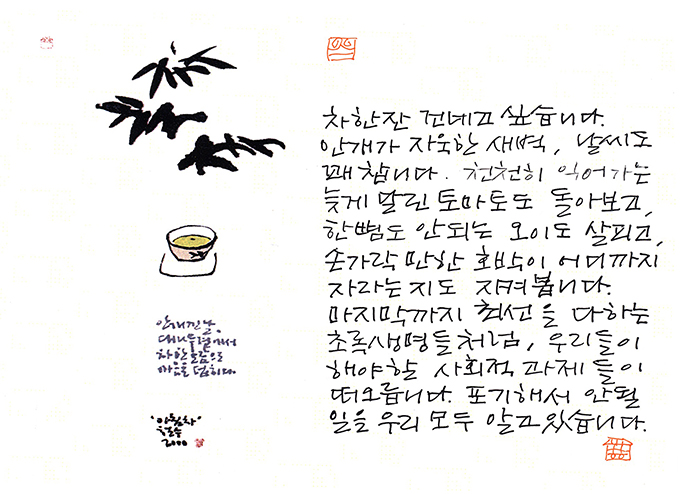 안개 낀 날,
대나무 곁에서
차 한 모금으로
마음을 덥히다.
"아침차"
철수
2000
차한잔 건네고 싶습니다.
안개가 자욱한 새벽, 날씨도
꽤 찹니다. 천천히 익어가는
늦게 달린 토마토도 돌아보고,
한뼘도 안되는 오이도 살피고,
손가락 만한 호박이 어디까지
자라는지도 지켜봅니다.
마지막까지 최선을 다하는
초록생명들처럼, 우리들이
해야할 사회적 과제들이
떠오릅니다. 포기해서 안될
일을 우리 모두 알고있습니다.